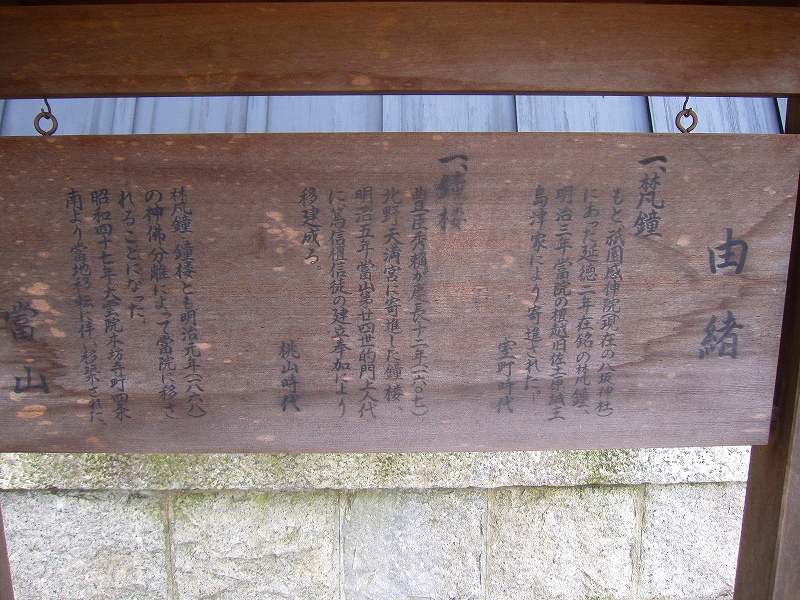 由緒
一、梵鐘
もと祇園感神院(現在の八坂神社)
にあった延徳二年在銘の梵鐘、
明治三年當院の檀越旧佐土原城主
島津家により寄進された。
室町時代
一、鐘楼
豊臣秀頼が慶長十二年(一六〇七)
北野天満宮に寄進した鐘楼、
明治五年當山第廿四世的門上人代
に篤信檀信徒の建立奉加により
移建成る。
桃山時代
梵鐘、鐘楼とも明治元年(一八六八)
の神佛分離によって當院に移さ
れることになった。
昭和四十七年大雲院本坊寺町四条
南より當地移転に伴い移築された、
當山